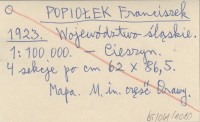 POPIOŁEK Franciszek
1923. Województwo śląskie.
1:100 000. – Cieszyn.
4 sekcje po cm 62 x 86,5.
Mapa. M. in. część Orawy.